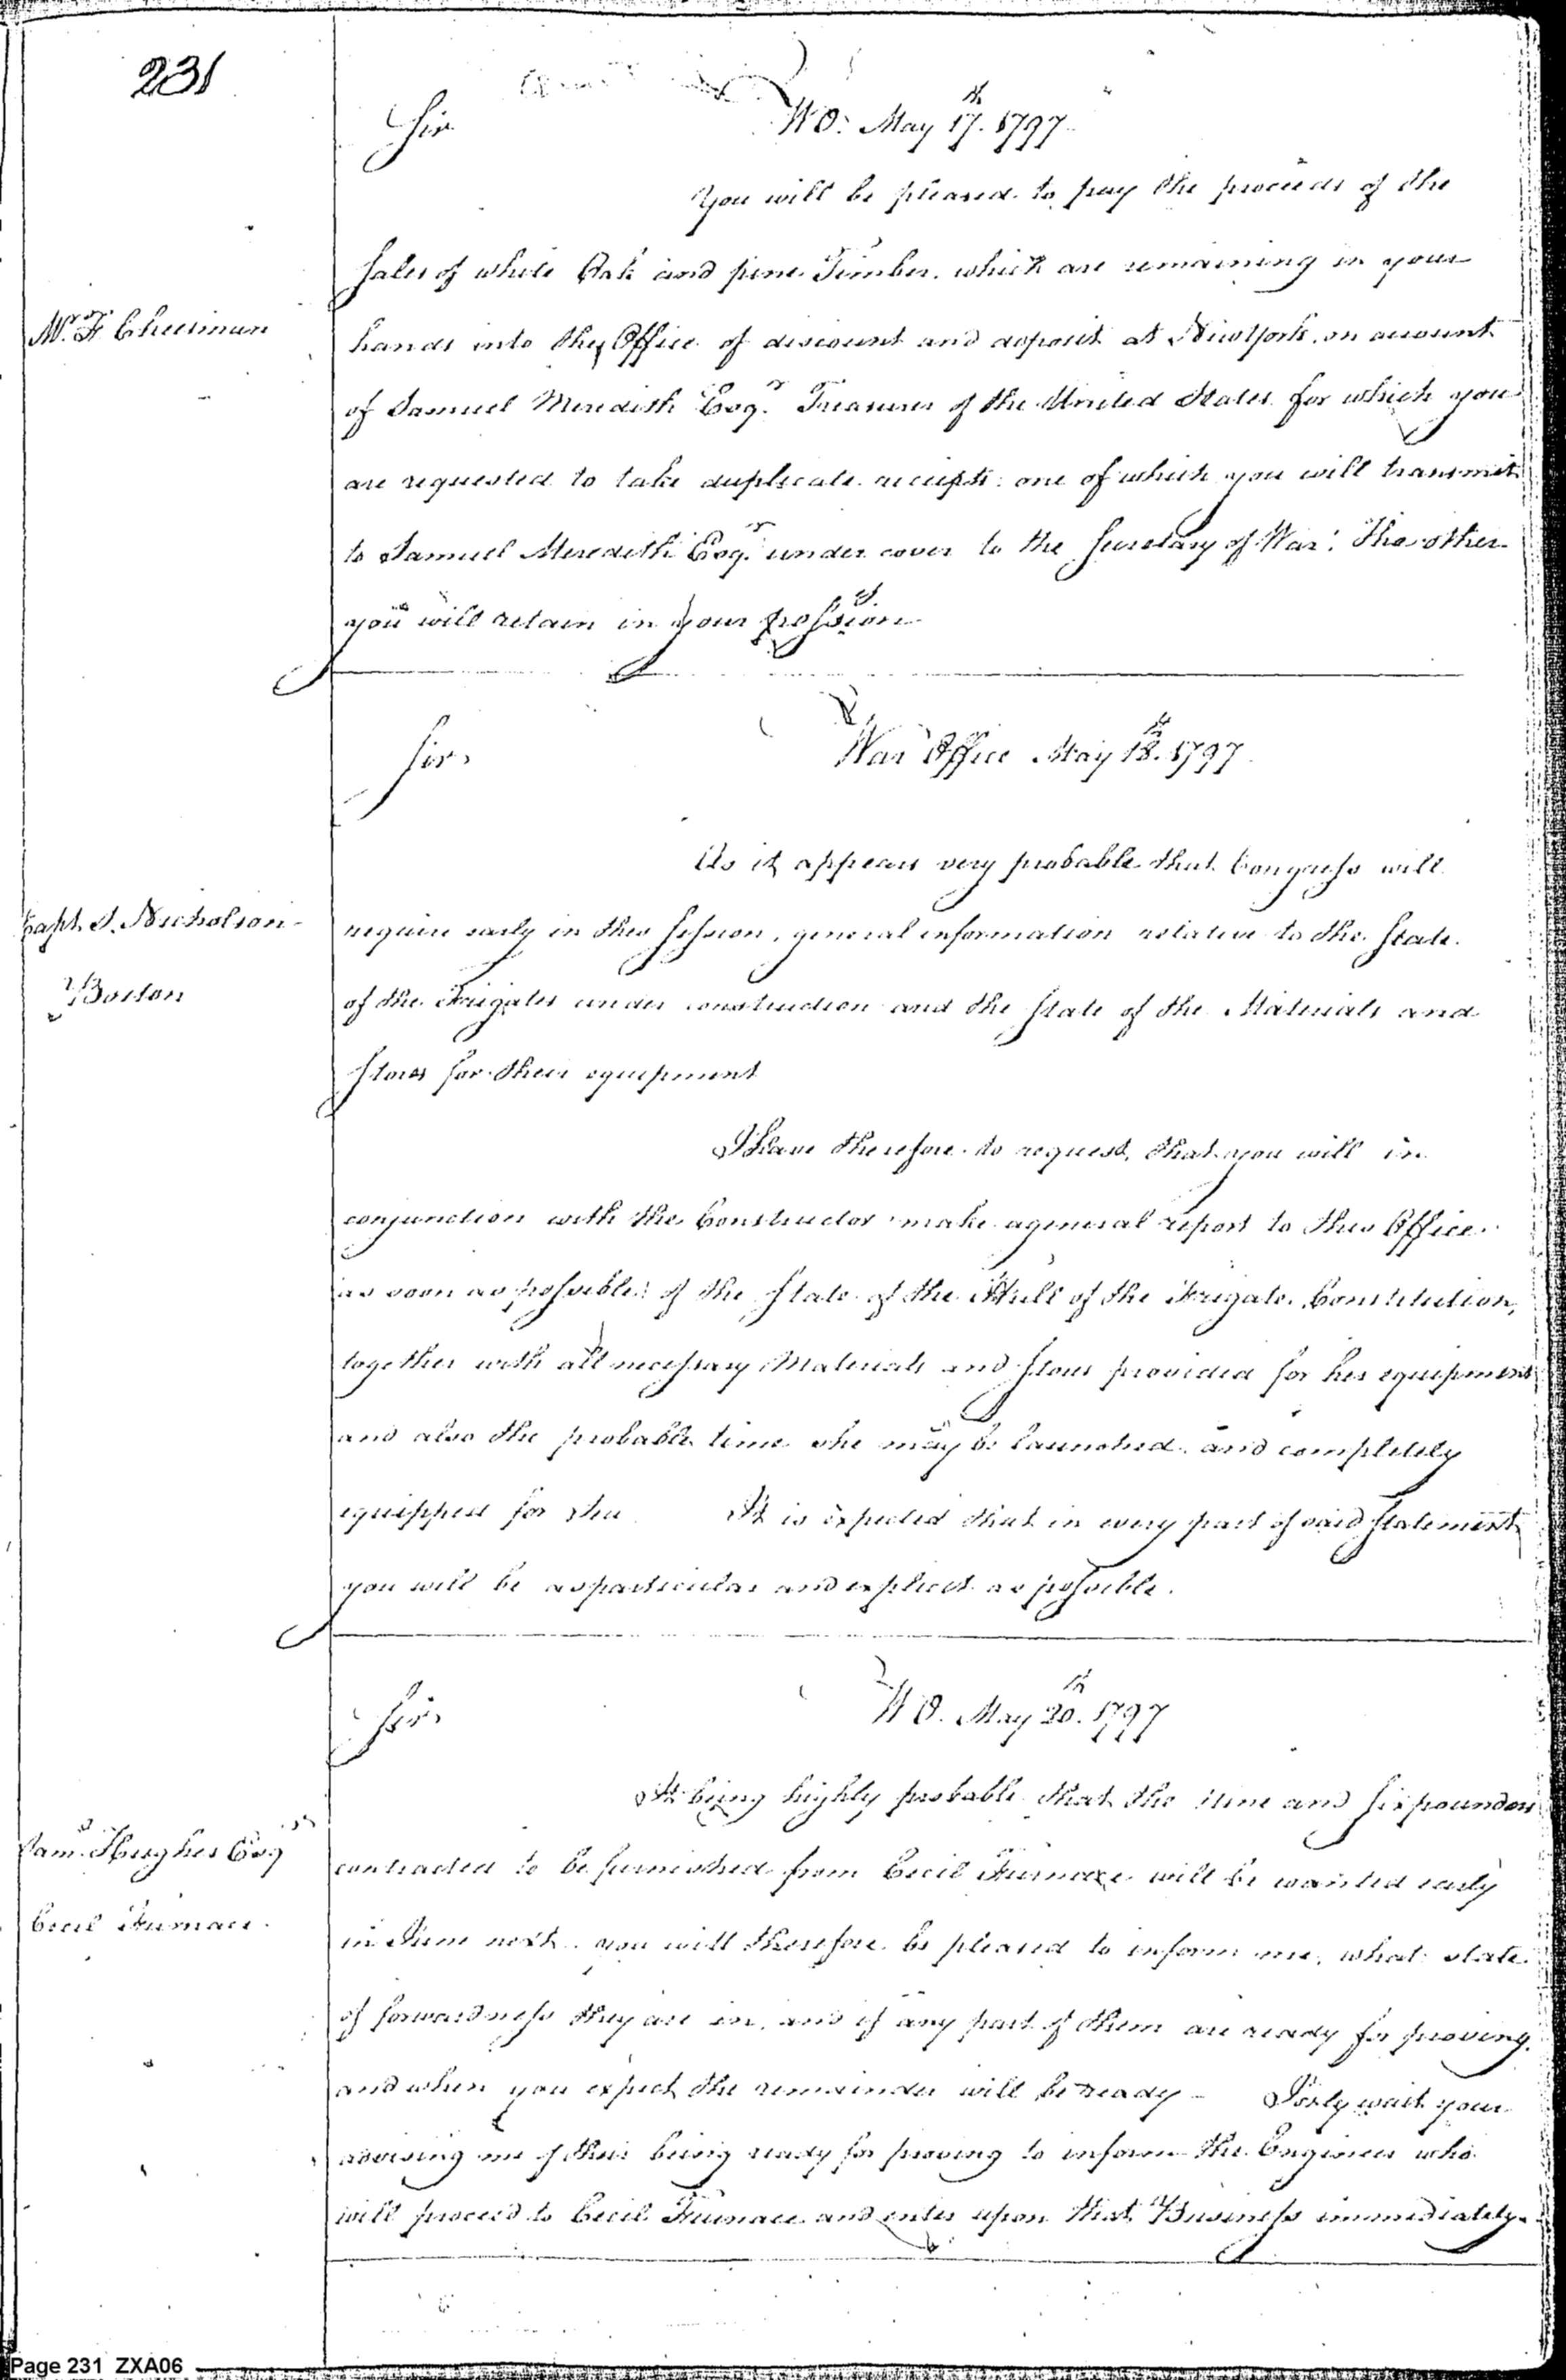 231
Sir
WO: May 17.th 1797.
You will be pleased to pay the proceeds of the
Sales of white Oak and pine Timber, which are remaining in your
Mr. F Cheesman
hands into the Office of discount and deposit at New York, on account
of Samuel Meredith Esqr. Treasurer of the United States for which you
are requested to take duplicate receipts: one of which you will transmit
to Samuel Meredith Esqr. under cover to the Secretary of War: The other
you will retain in your possession
Sir,
War Office May 18.th 1797.
As it appears very probable that Congress will
Capt. S. Nicholson
require early in this Session, general information relative to the State
Boston
of the Frigates under construction and the State of the Materials and
Stores for their equipment
I have therefore to request, that you will in
conjunction with the Constructor make a general report to this Office
as soon as possible: of the State of the Hull of the Frigate Constitution,
together with all necessary Materials and Stores provided for her equipment
and also the probable time she may be launched, and completely
equipped for Sea It is expected that in every part of said Statement
you will be as particular and explicit as possible.
Sir,
W O. May 20.th 1797
It being highly probable that the nine and Six pounders
Sam.l Hughes Esqr
contracted to be furnished from Cecil Furnace will be wanted early
Cecil Furnace.
in June next. you will therefore be pleased to inform me, what state
of forwardness they are in, and if any part of them are ready for proving,
and when you expect the remainder will be ready - I only wait your
advising me of their being ready for proving to inform the Engineer who
will proceed to Cecil Furnace and enter upon that Business immediately.
Page 231 ZXA06